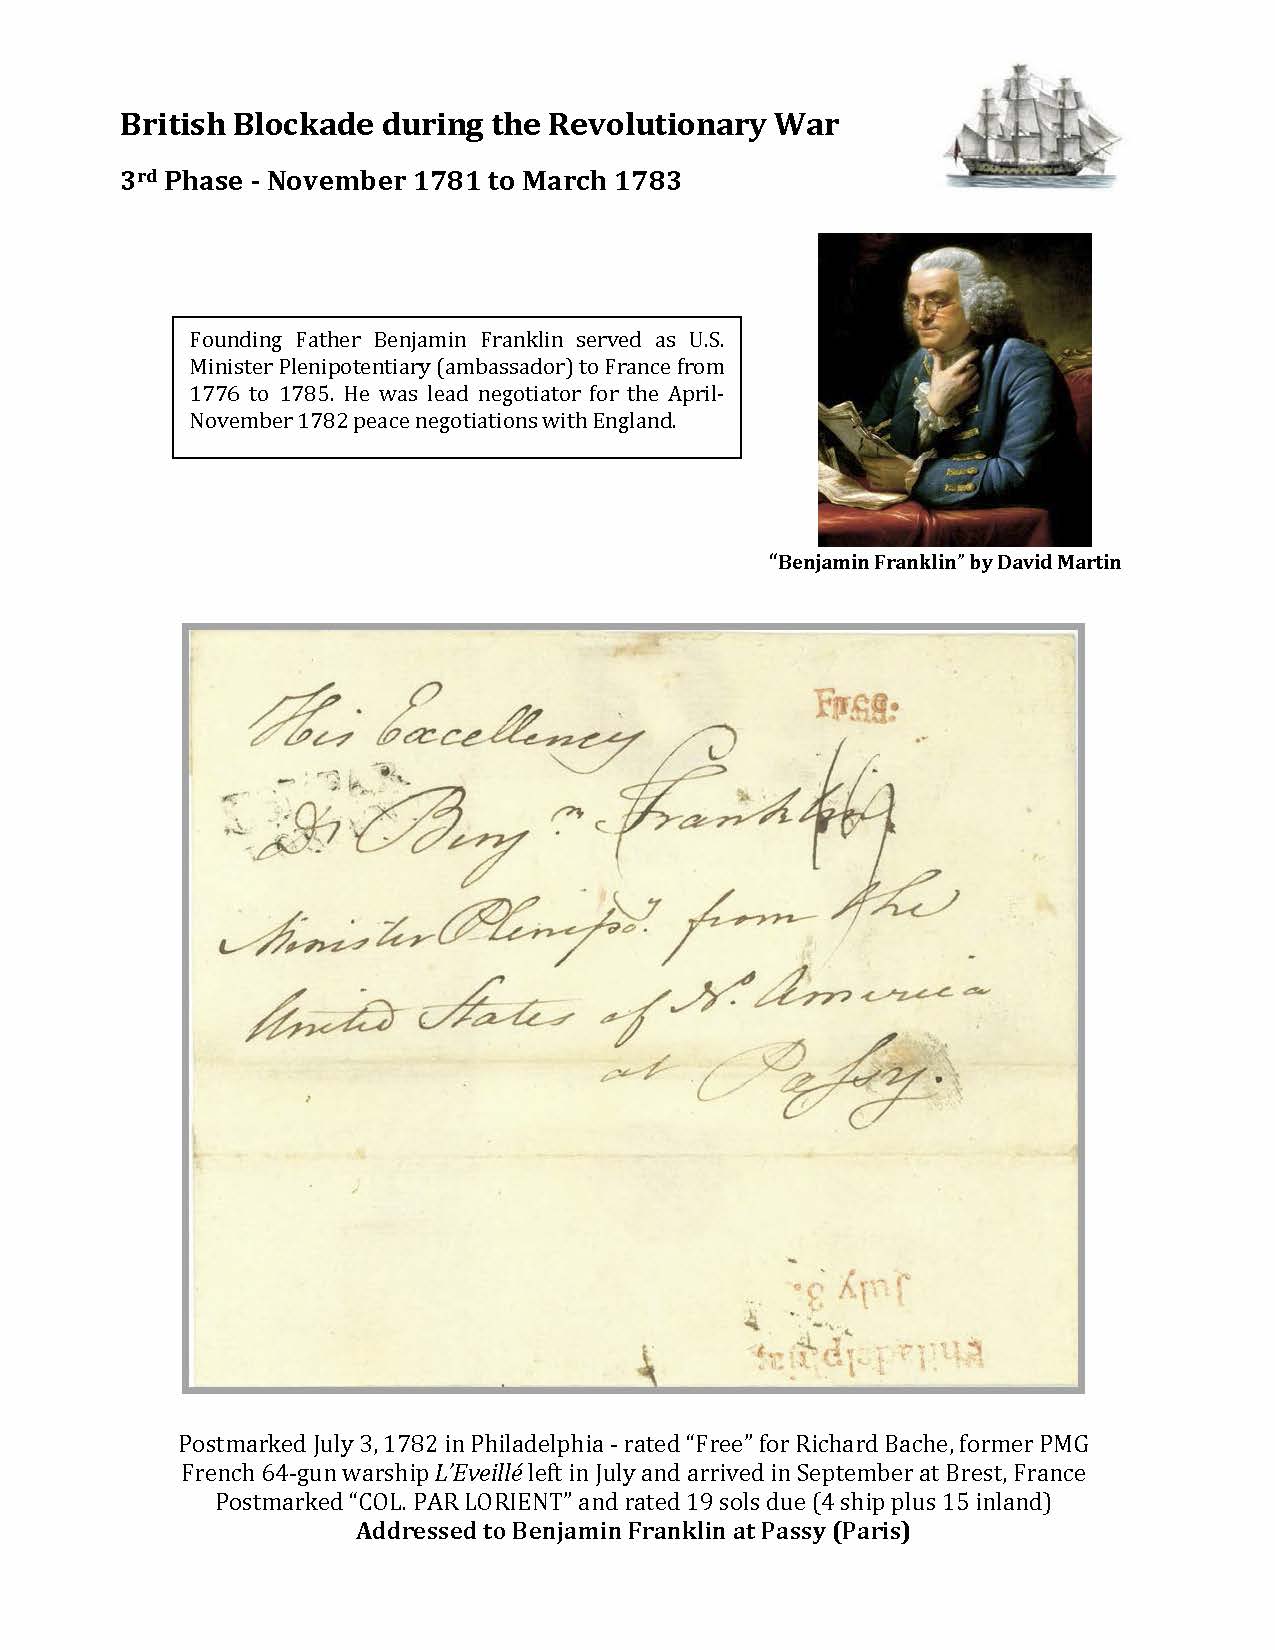 British Blockade during the Revolutionary War
3rd Phase - November 1781 to March 1783
Founding Father Benjamin Franklin served as U.S.
Minister Plenipotentiary (ambassador) to France from
1776 to 1785. He was lead negotiator for the April-
November 1782 peace negotiations with England.
“Benjamin Franklin” by David Martin
Free.
His Excellency
Dr Benjn. Franklin
Minister Plenipoy. from the
United States of No. America
at Passy.
July 3.
Philadelphia,
Postmarked July 3, 1782 in Philadelphia - rated “Free” for Richard Bache, former PMG
French 64-gun warship L’Eveillé left in July and arrived in September at Brest, France
Postmarked “COL. PAR LORIENT” and rated 19 sols due (4 ship plus 15 inland)
Addressed to Benjamin Franklin at Passy (Paris)